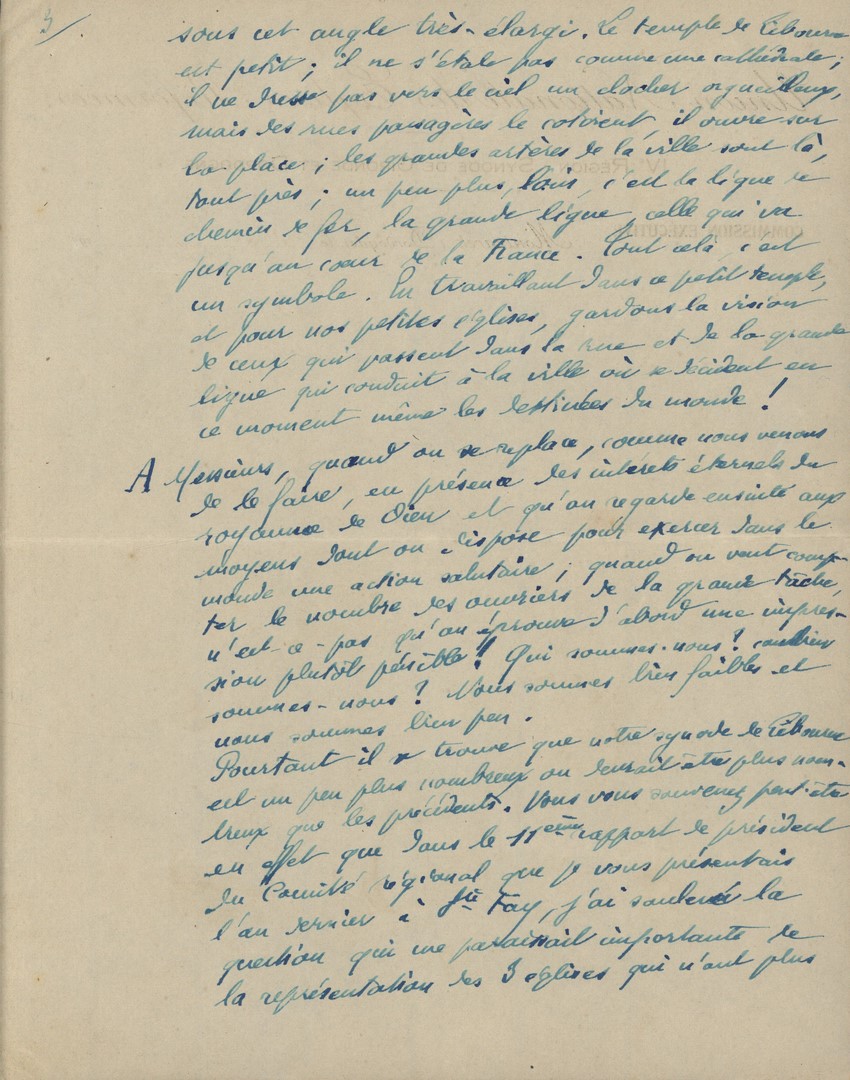 3/
sous cet angle très-élargi. Le temple de Libourne
est petit ; il ne s'étale pas comme une cathédrale ;
il ne dresse pas vers le ciel un clocher orgueilleux,
mais des rues passagères le cotoient, il ouvre sur
la place ; les grandes artères de la ville sont là,
tout près ; un peu plus loin, c'est la ligne de
chemin de fer, la grande ligne, celle qui va
jusqu'au coeur de la France. Tout celà, c'est
un symbole. En travaillant dans ce petit temple,
et pour nos petites églises, gardons la vision
de ceux qui passent dans la rue et de la grande
ligne qui conduit à la ville où se décident en
ce moment même les destinées du monde !
A Messieurs, quand on se replace, comme nous venons
de le faire, en présence des intérêts éternels du
royaume de Dieu et qu'on regarde ensuite aux
moyens dont on dispose pour exercer dans le
monde une action salutaire ; quand on veut comp-
ter le nombre des ouvriers de la grande tâche,
n'est-ce-pas qu'on éprouve d'abord une impres-
sion plutôt pénible ! Qui sommes-nous ? combien
sommes-nous ? Nous sommes bien faibles et
nous sommes bien peu.
Pourtant il se trouve que notre synode de Libourne
est un peu plus nombreux ou devrait être plus nom-
breux que les précédents. Vous vous souvenez peut-être
en effet que dans le 11ème rapport de président
du Comité régional que je vous présentais
l'an dernier à Ste Foy, j'ai soulevé la
question qui me paraissait importante de
la représentation des 3 églises qui n'ont plus